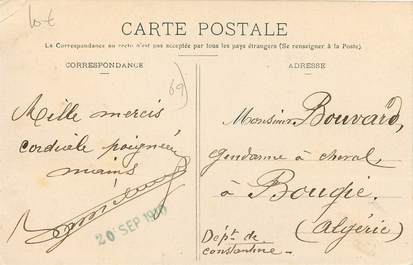 10€
CARTE POSTALE
La Correspondance au recto n'est pas acceptée par tous les pays étrangers (Se renseigner à la Poste).
CORRESPONDANCE
69
Mille mercis
cordiale poignée
mains
20 SEP 1910
ADRESSE
Monsieur Bouvard,
gendarme à cheval
à Bougie.
(Algérie)
Dépt. de
Constantine